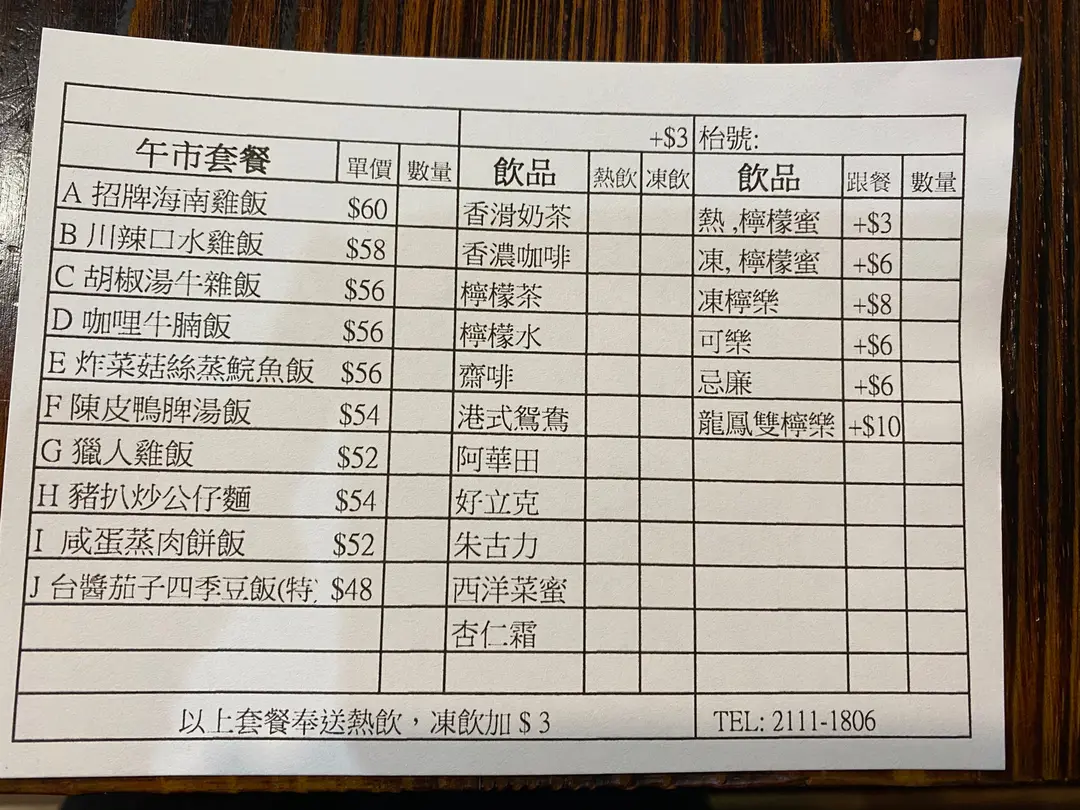 +$3 枱號:
午市套餐 單價 數量 飲品 熱飲 凍飲 飲品 跟餐 數量
A 招牌海南雞飯 $60 香滑奶茶 熱 ,檸檬蜜 +$3
B 川辣口水雞飯 $58 香濃咖啡 凍, 檸檬蜜 +$6
C 胡椒湯牛雜飯 $56 檸檬茶 凍檸樂 +$8
D 咖哩牛腩飯 $56 檸檬水 可樂 +$6
E 炸菜菇絲蒸鯇魚飯 $56 齋啡 忌廉 +$6
F 陳皮鴨脾湯飯 $54 港式鴛鴦 龍鳳雙檸樂 +$10
G 獵人雞飯 $52 阿華田
H 豬扒炒公仔麵 $54 好立克
I 咸蛋蒸肉餅飯 $52 朱古力
J 台醬茄子四季豆飯(特) $48 西洋菜蜜
杏仁霜
以上套餐奉送熱飲，凍飲加 $ 3 TEL: 2111-1806